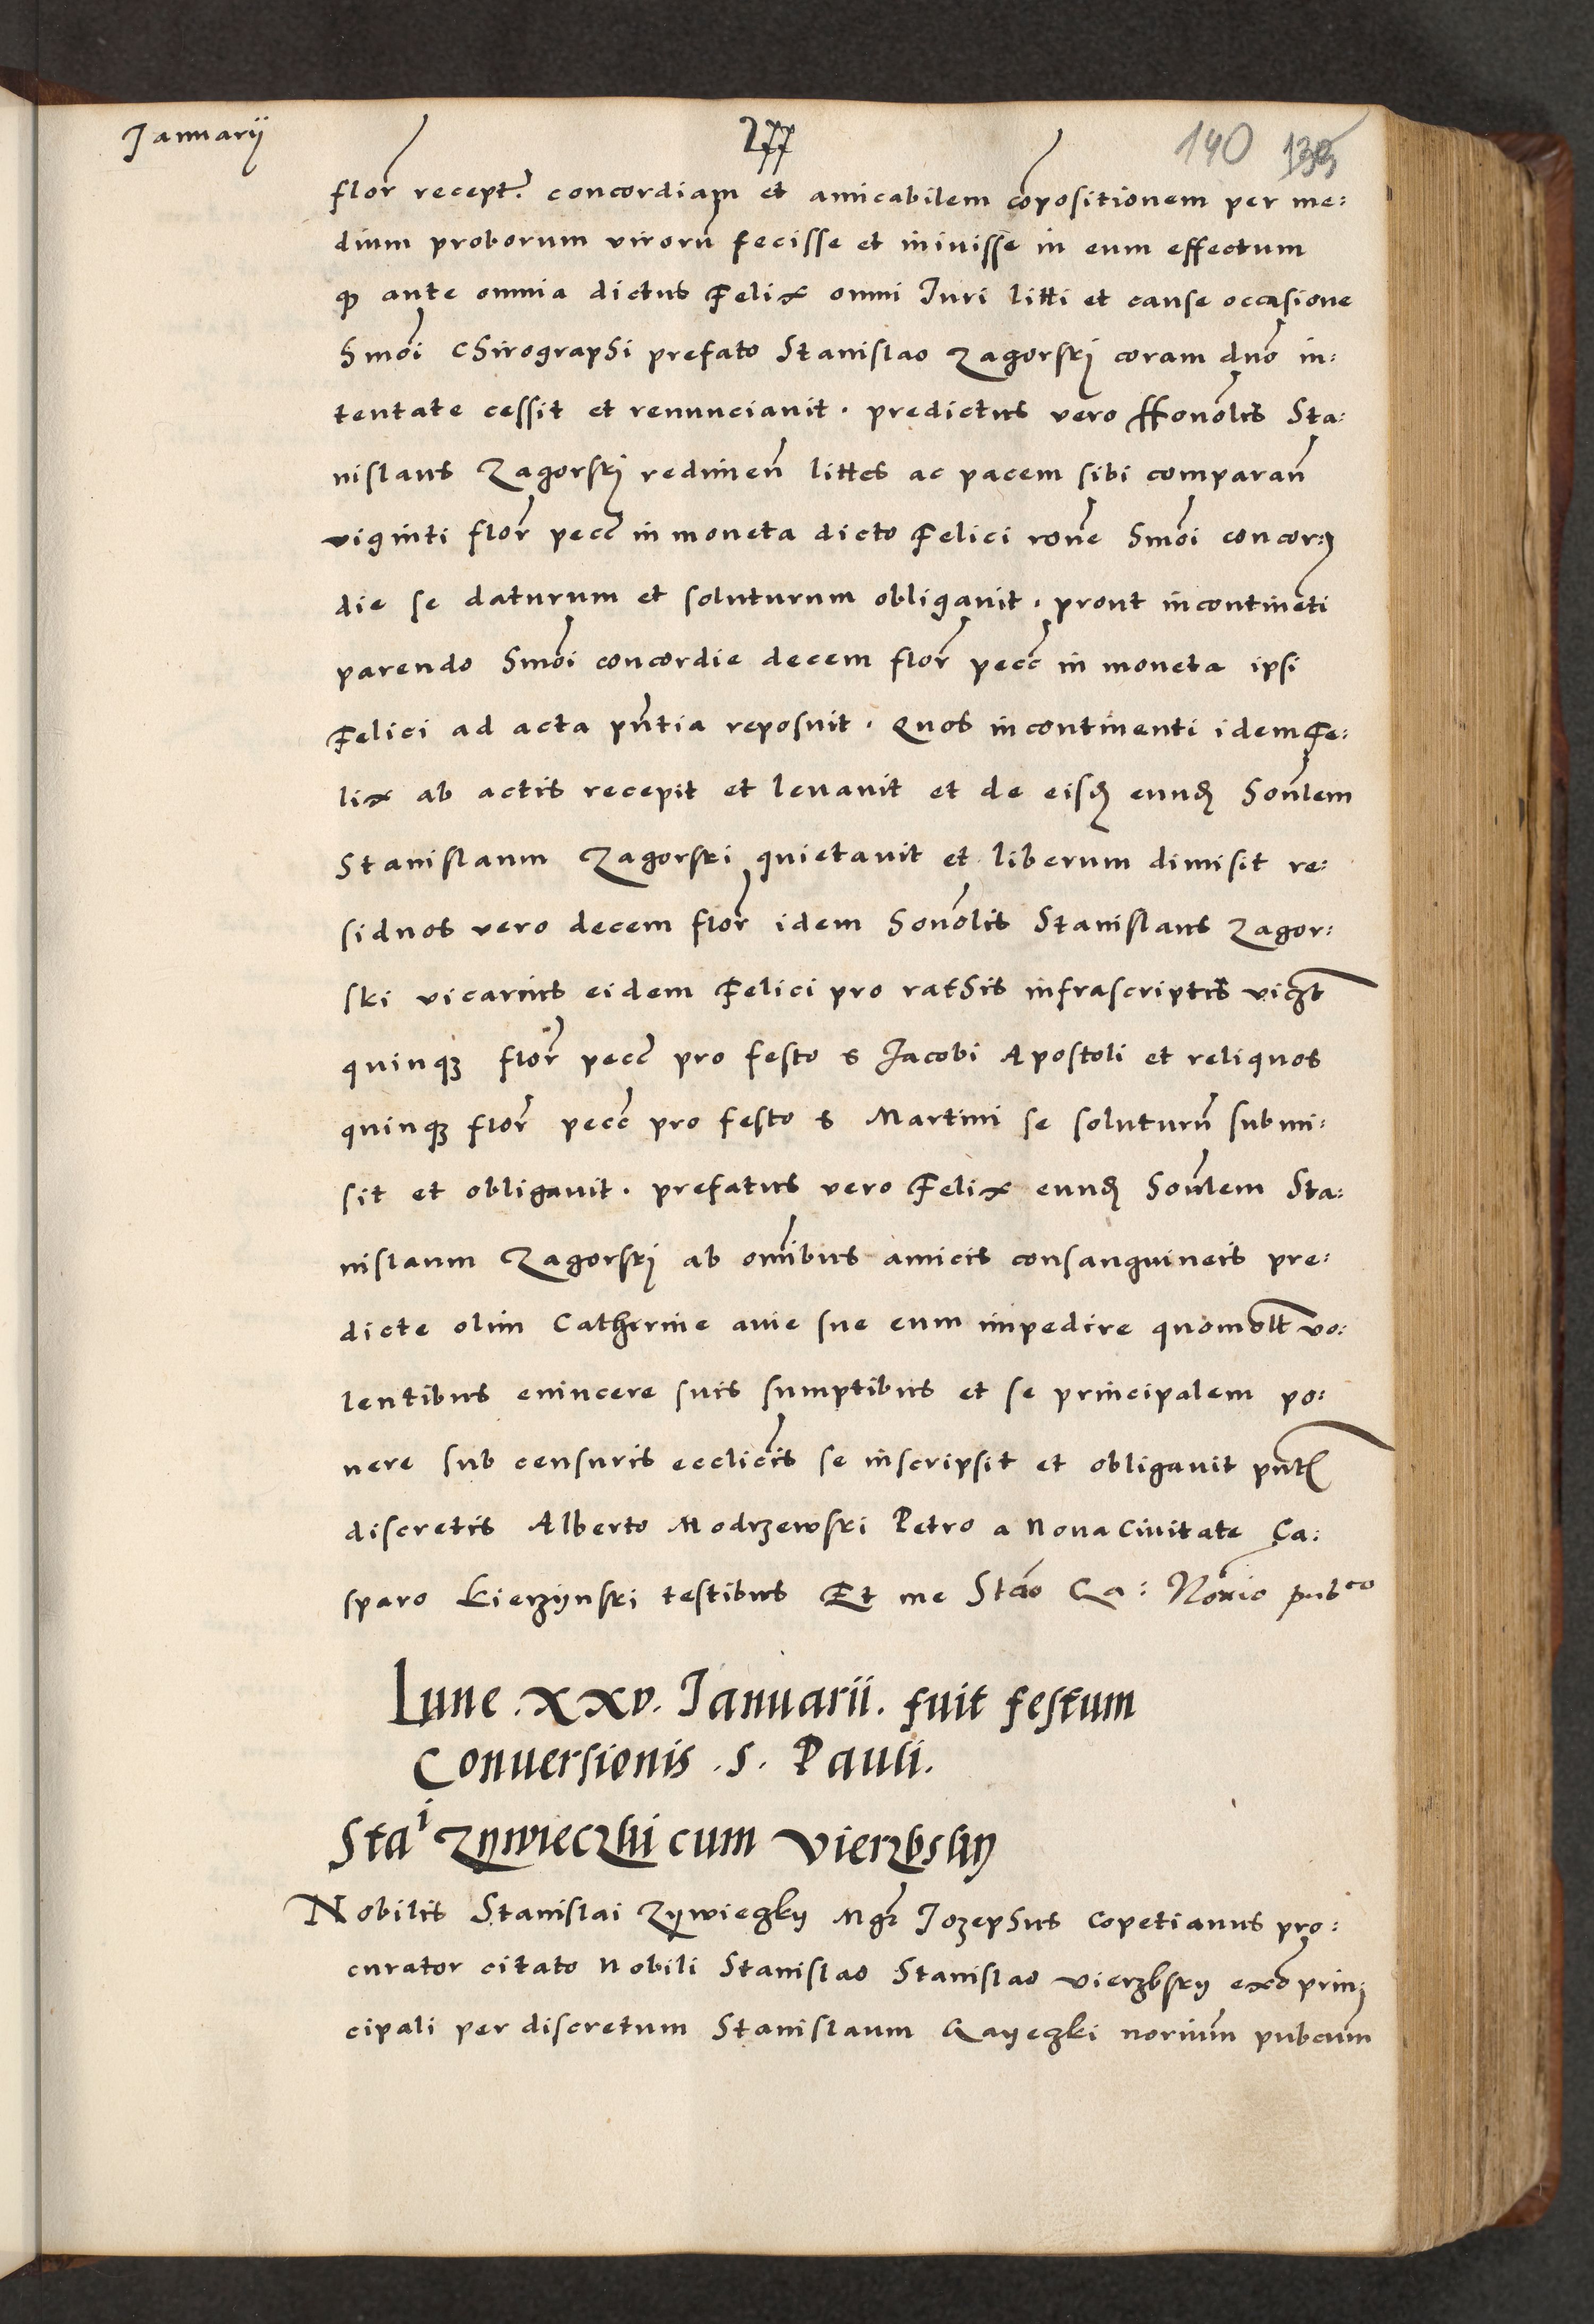 Januarii 277 140 139
flor recept. concordiam et amicabilem copositionem per me:
dium proborum viroru fecisse et iniuisse in eum effectum
qp ante omnia dictus Felix omni Iuri litti et cause occasione
hmoi chirographi prefato Stanislao Zagorskj coram dno in:
tentate cessit et renunciauit. predictus vero Honolis Sta:
nislaus Zagorskj redimen littes ac pacem sibi comparan
viginti flor pecc in moneta dicto Felici rone hmoi concor:
die se daturum et soluturum obligauit. prout incontineti
parendo hmoi concordie decem flor pecc in moneta ipsi
Felici ad acta pntia reposuit. Quos incontinenti idem Fe:
lix ab actis recepit et leuauit et de eisd eund honlem
Stanislaum Zagorski quietauit et liberum dimisit re:
siduos vero decem flor idem honolis Stanislaus Zagor:
ski vicarius eidem Felici pro rathis infrascriptis vicgt
quinqz flor pecc pro festo s Jacobi Apostoli et reliquos
quinqz flor pecc pro festo s Martini se soluturu submi:
sit et obligauit. prefatus vero Felix eund honlem Sta:
nislaum Zagorskj ab omibus amicis consanguineis pre:
dicte olim Catherine auie sue eum impedire quomolt vo:
lentibus euincere suis sumptibus et se principalem po:
nere sub censuris ecclicis se inscripsit et obligauit pntt
discretis Alberto Modrzewski Petro a Noua Ciuitate Ca:
sparo Kierzynski testibus Et me Stao Ga: Norio pubco
Lune .xxv. Ianuarii. fuit festum
Conuersionis .s. Pauli.
Stai Zywieczki cum Vierzbsky
Nobilis Stanislai Zywieczky Mgr Jozephus Copetianus pro:
curator citato Nobili Stanislao Stanislao Vierzbsky exo prin:
cipali per discretum Stanislaum Gayeczki norium pubcum